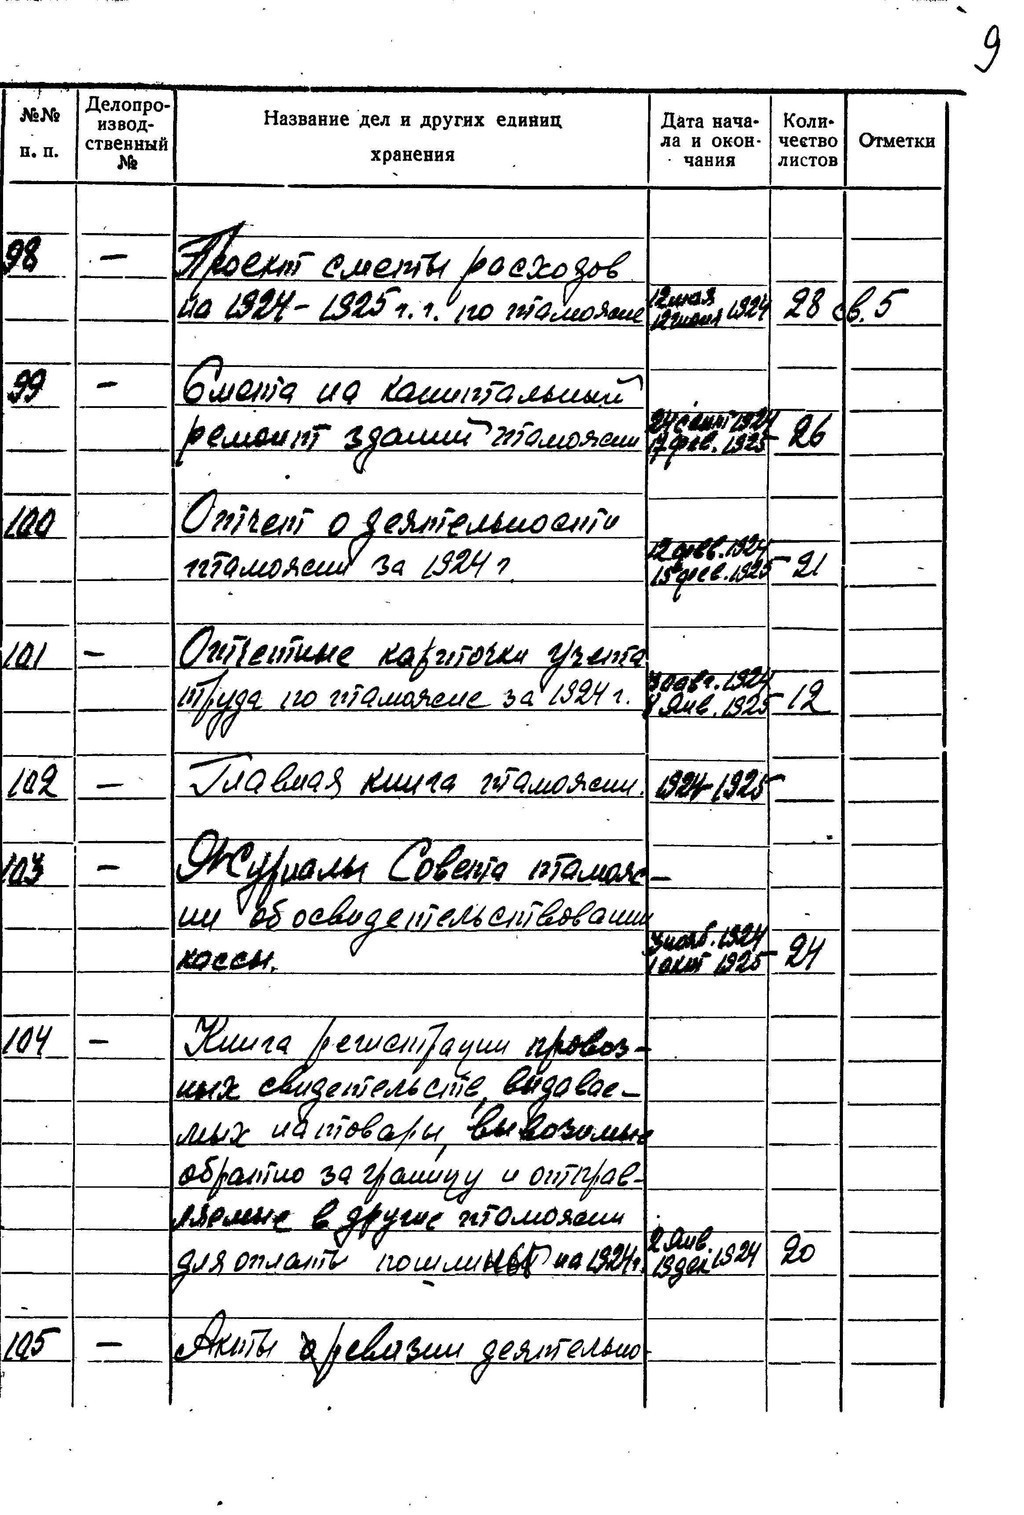 9
№№ п. п.
Делопро-
извод-
ственный
№
Название дел и других единиц
хранения
Дата нача-
ла и окон-
чания
Коли-
чество
листов
Отметки
98 — Проект сметы расходов
на 1924-1925 г.г. по таможне 12 мая 12 июня 1924 28 св. 5
99 — Смета на капитальный
ремонт зданий таможни 24 сент 1924 17 фев. 1925 26
100 Отчет о деятельности
таможни за 1924 г. 12 фев. 1924 15 фев. 1925 21
101 — Отчетные карточки учета
труда по таможне за 1924 г. 30 авг. 1924 8 янв. 1925 12
102 — Главная книга таможни. 1924-1925
103 — Журналы Совета тамож-
ни об освидетельствовании
кассы. 3 нояб. 1924 1 окт 1925 24
104 — Книга регистрации провоз-
ных свидетельств, выдавае-
мых на товары, вывозимые
обратно за границу и отправ-
ляемые в другие таможни
для оплаты пошлины на 1924 г. 2 янв. 19 дек 1924 20
105 — Акты о ревизии деятельно-